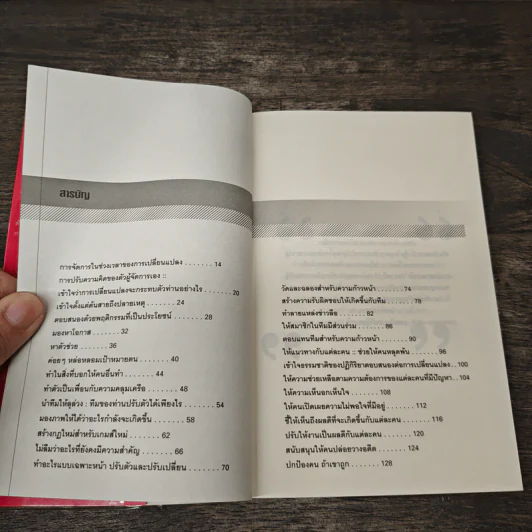 สารบัญ
การจัดการในช่วงเวลาของการเปลี่ยนแปลง . . . . . . . 14
การปรับความคิดของตัวผู้จัดการเอง ::
เข้าใจว่าการเปลี่ยนแปลงจะกระทบตัวท่านอย่างไร . . . . . . . 20
เข้าใจตั้งแต่ต้นสายถึงปลายเหตุ . . . . . . . 24
ตอบสนองด้วยพฤติกรรมที่เป็นประโยชน์ . . . . . . . 28
มองหาโอกาส . . . . . . . 32
หาตัวช่วย . . . . . . . 36
ค่อยๆ หล่อหลอมเป้าหมายตน . . . . . . . 40
ทำในสิ่งที่บอกให้คนอื่นทำ . . . . . . . 44
ทำตัวเป็นเพื่อนกับความคลุมเครือ . . . . . . . 48
นำทีมให้ลุล่วง : ทีมของท่านปรับตัวได้เพียงไร . . . . . . . 54
มองภาพให้ได้ว่าอะไรกำลังจะเกิดขึ้น . . . . . . . 58
สร้างกฎใหม่สำหรับเกมส์ใหม่ . . . . . . . 62
ไม่ลืมว่าอะไรที่ยังคงมีความสำคัญ . . . . . . . 66
ทำอะไรแบบเฉพาะหน้า ปรับตัวและปรับเปลี่ยน . . . . . . . 70
วัดและฉลองสำหรับความก้าวหน้า . . . . . . . 74
สร้างความรับผิดชอบให้เกิดขึ้นกับทีม . . . . . . . 78
ทำลายแหล่งข่าวลือ . . . . . . . 82
ให้สมาชิกในทีมมีส่วนร่วม . . . . . . . 86
ตอบแทนทีมสำหรับความก้าวหน้า . . . . . . . 90
ให้แนวทางกับแต่ละคน : ช่วยให้คนหลุดพ้น . . . . . . . 96
เข้าใจธรรมชาติของปฏิกิริยาตอบสนองต่อการเปลี่ยนแปลง . . . . . 100
ให้ความช่วยเหลือตามความต้องการของแต่ละคนที่มีปัญหา . . . . 104
ให้ความเห็นอกเห็นใจ . . . . . . . 108
ให้คนเปิดเผยความไม่พอใจที่มีอยู่ . . . . . . . 112
ชี้ให้เห็นถึงผลดีที่จะเกิดขึ้นกับแต่ละคน . . . . . . . 116
ปรับให้งานเป็นผลดีกับแต่ละคน . . . . . . . 120
สนับสนุนให้คนปล่อยวางอดีต . . . . . . . 124
ปกป้องคน ถ้าเขาถูก . . . . . . . 128